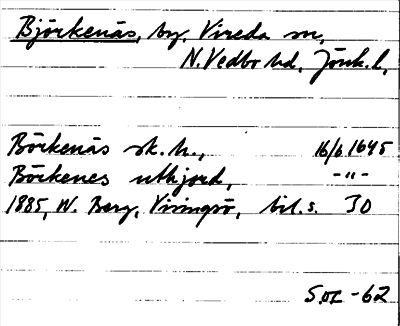 Björkenäs, by, Vireda sn,
N. Vedbo hd, Jönk. l,
Börkenäs sk. h., 16/6 1645
Börkenes utkjord, -"-
1885, W. Berg, Visingsö, bil. s. 30
-62